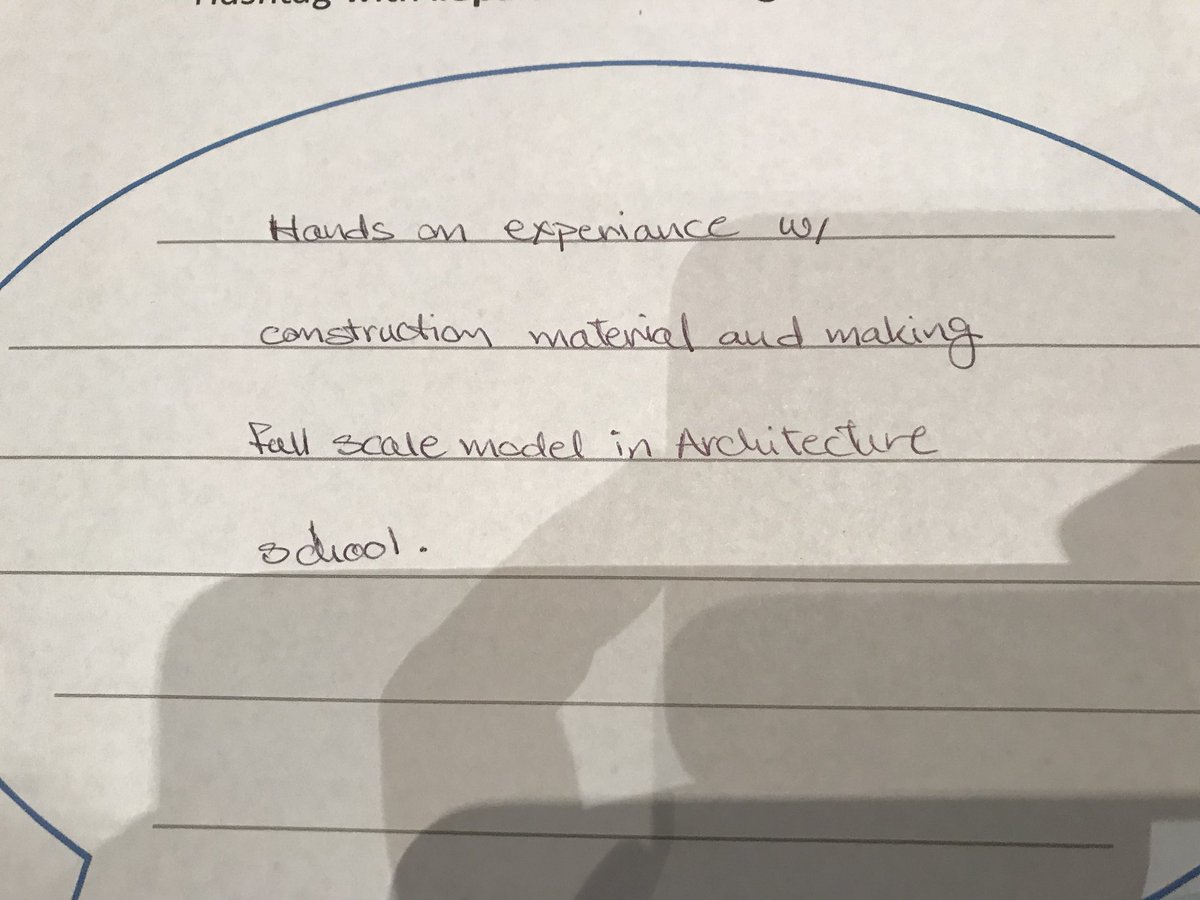 Hashtag with
Hands on experiance w/
construction material and making
full scale model in Architecture
school.